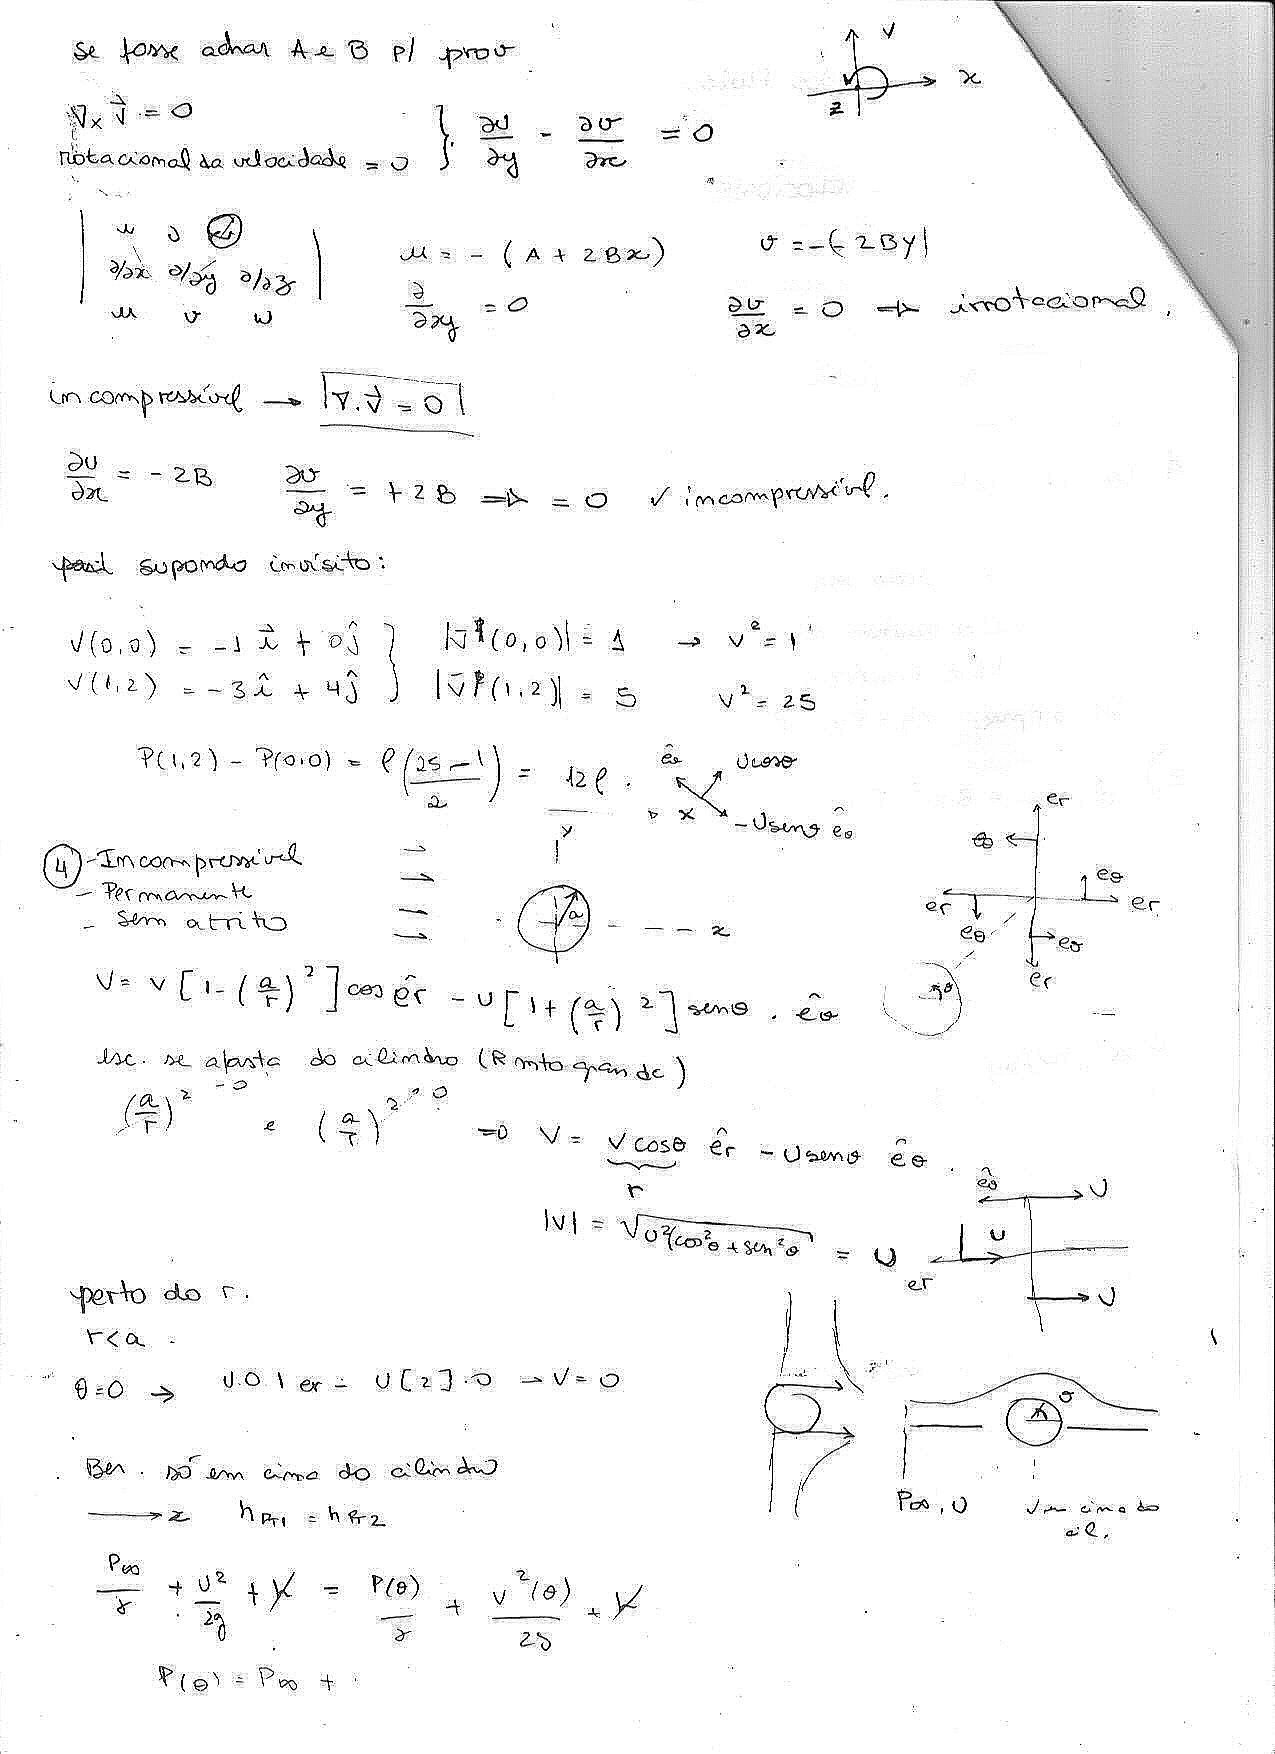 se fosse achar A e B p/ prov
y
x
z
∇x V⃗ = 0
rotacional da velocidade = 0 } ∂U/∂y - ∂v/∂x = 0
∂/∂x ∂/∂y ∂/∂z
u v w
u = - (A + 2Bx) v = -(-2By)
∂/∂xy = 0 ∂v/∂x = 0 => irrotacional.
incompressível → ∇.V⃗ = 0
∂U/∂x = - 2B ∂v/∂y = +2B => = 0 ✓ incompressível.
supondo invísito:
V(0,0) = -1 i⃗ + 0ĵ } |V(0,0)| = 1 → v² = 1
V(1,2) = -3 î + 4ĵ } |V(1,2)| = 5 v² = 25
P(1,2) - P(0,0) = ρ(25-1/2) = 12ρ.
êθ Ucosθ
x -Usenθ êθ
er
eθ
eθ
er er
eθ eθ
er
④ - Incompressível
- Permanente
- Sem atrito
y
a
x
V = v [1-(a/r)²] cos êr - U[1+(a/r)²] senθ . êθ
esc. se afasta do cilindro (R mto grande)
(a/r)² → 0 e (a/r)² → 0 => V = v cosθ êr - U senθ êθ.
r
|V| = √U²(cos²θ + sen²θ) = U
êθ U
U
er
U
perto do r.
r<a.
θ=0 → U.0.1 er - U[2].0 → V = 0
θ
Ber. só em cima do cilindro
P∞, U V em cima do cil.
→ z hPT1 = hPT2
P∞/γ + U²/2g + z = P(θ)/γ + v²(θ)/2g + z
P(θ) = P∞ +